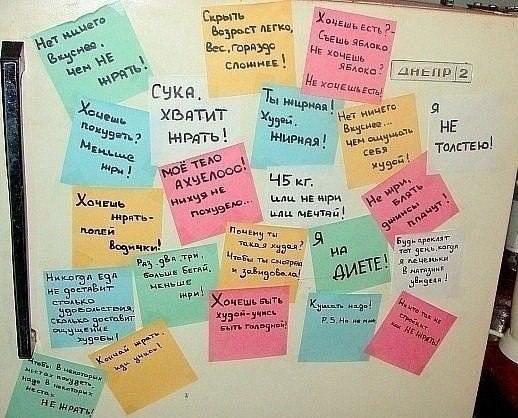 Нет ничего
вкуснее,
чем НЕ
ЖРАТЬ!
Скрыть
возраст легко,
Вес, гораздо
сложнее!
Хочешь есть?-
Съешь яблоко
Не хочешь
яблоко?
Не хочешь есть!
ДНЕПР 2
Хочешь
похудеть?
Меньше
жри!
СУКА,
ХВАТИТ
ЖРАТЬ!
Ты жирная!
Худей,
ЖИРНАЯ!
Нет ничего
Вкуснее...
чем ощущать
себя
худой!
Я
НЕ
ТОЛСТЕЮ!
Хочешь
жрать-
попей
водички!
МОЁ ТЕЛО
АХУЕЛООО!
нихуя не
похудело...
45 кг.
или не жри
или мечтай!
Не жри,
блять
джинсы
плачут!
Никогда Еда
не доставит
столько
удовольствия,
сколько доставит
ощущение
худобы!
Раз, два, три,
больше бегай,
меньше
жри!
Почему ты
такая худая?
Чтобы ты смотрела
и завидовала!
Я
НА
ДИЕТЕ!
Будь проклят
тот день, когда
я печеньки
в магазине
увидела!
Хочешь быть
худой-учись
быть голодной!
Кушать надо!
P.S. Но не мне
Ничто так не
стройнит
как НЕ ЖРАТЬ!
Чтобы в некоторых
местах похудеть,
надо в некоторых
местах
НЕ ЖРАТЬ!
Кончай жрать,
иди учись!